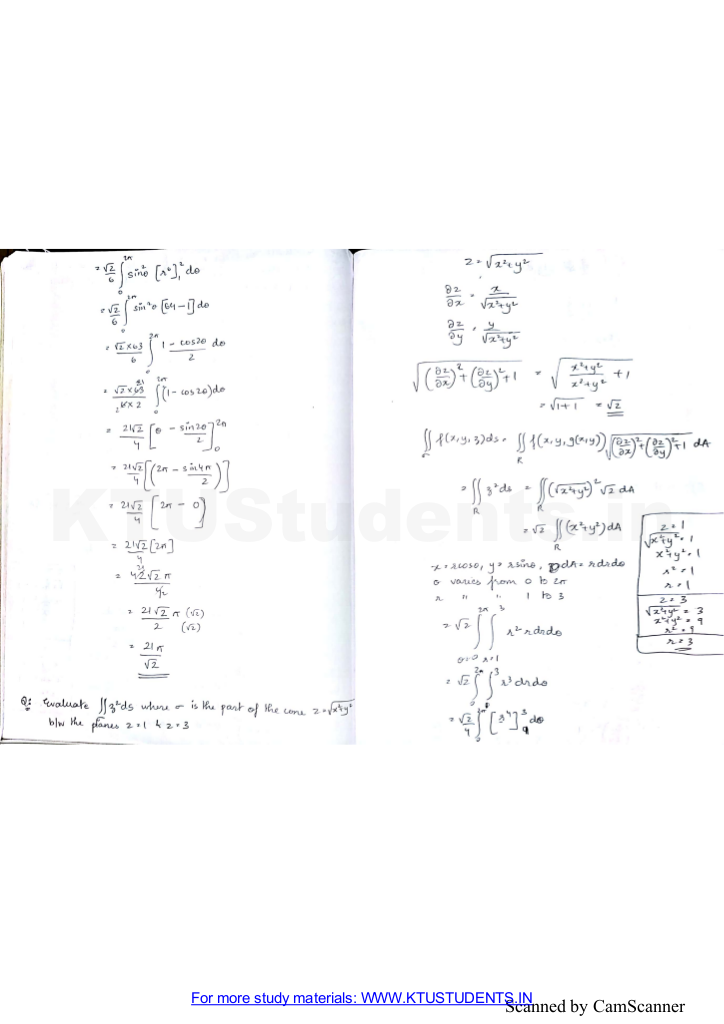 = √2/6 ∫₀^2π sin²θ [r⁶]₁² dθ
= √2/6 ∫₀^2π sin²θ [64 − 1] dθ
= √2 × 63/6 ∫₀^2π 1 − cos2θ/2 dθ
= √2 × 63/6 × 2 ∫₀^2π (1 − cos2θ) dθ
= 21√2/4 [θ − sin2θ/2]₀^2π
= 21√2/4 [(2π − sin4π/2)]
= 21√2/4 [2π − 0]
= 21√2/4 [2π]
= 42√2 π/4
= 21√2/2 π (√2)/(√2)
= 21π/√2
Q: Evaluate ∬ z² ds where σ is the part of the cone z = √x²+y²
b/w the planes z = 1 & z = 3
z = √x²+y²
∂z/∂x = x/√x²+y²
∂z/∂y = y/√x²+y²
√(∂z/∂x)² + (∂z/∂y)² + 1 = √x²+y²/x²+y² + 1
= √1+1 = √2
∬σ f(x,y,z) ds = ∬R f(x,y,g(x,y)) √(∂z/∂x)² + (∂z/∂y)² + 1 dA
= ∬R z² ds = ∬R (√x²+y²)² √2 dA
= √2 ∬R (x²+y²) dA
x = r cosθ, y = r sinθ, dA = r dr dθ
θ varies from 0 to 2π
r " " 1 to 3
= √2 ∫θ=0^2π ∫r=1^3 r² r dr dθ
= √2 ∫₀^2π ∫₁³ r³ dr dθ
z = 1
√x²+y² = 1
x²+y² = 1
r² = 1
r = 1
z = 3
√x²+y² = 3
x²+y² = 9
r² = 9
r = 3
KTUStudents.in
For more study materials: WWW.KTUSTUDENTS.IN
Scanned by CamScanner